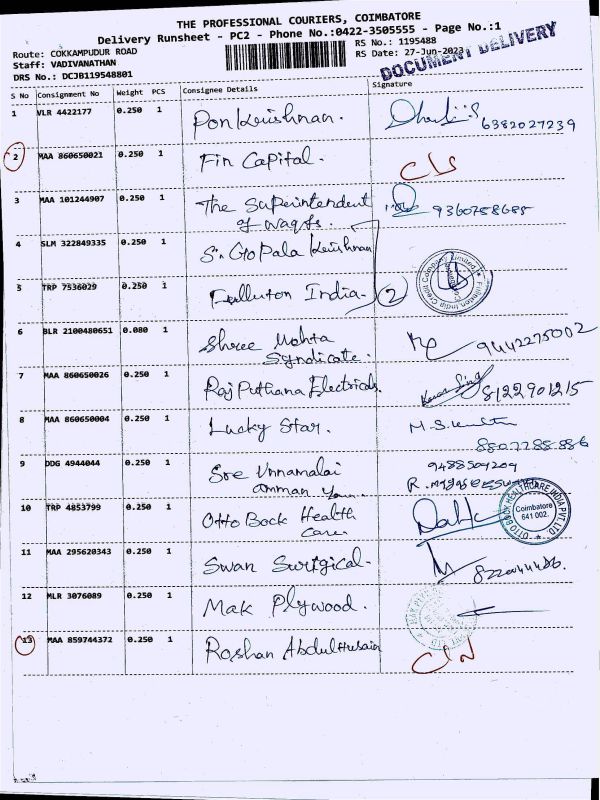 THE PROFESSIONAL COURIERS, COIMBATORE
Delivery Runsheet - PC2 - Phone No.:0422-3505555 - Page No.:1
Route: COKKAMPUDUR ROAD
RS No.: 1195488
Staff: VADIVANATHAN
RS Date: 27-Jun-2023
DRS No.: DCJB119548801
DOCUMENT DELIVERY
S No Consignment No Weight PCS Consignee Details Signature
1 VLR 4422177 0.250 1 Pon Krishnan. 6382027239
2 MAA 860650021 0.250 1 Fin Capital. CLS
3 MAA 101244907 0.250 1 The Superintendent
of waqfs. 9360758685
4 SLM 322849335 0.250 1 S. Gopala Krishnan
5 TRP 7536029 0.250 1 Fulluton India- 2
Fullerton India Credit Company Limited
6 BLR 2100480651 0.080 1 Shree Mehta
Syndicate. 9442275002
7 MAA 860650026 0.250 1 Raj Puthana Electricals 8122901215
8 MAA 860650004 0.250 1 Lucky Star.
8807788886
9 DDG 4944044 0.250 1 Sree Unnamalai 9488504204
amman
10 TRP 4853799 0.250 1 Otto Bock Health
Care.
OTTO BOCK HEALTHCARE INDIA PVT. LTD.
Coimbatore
641 002.
11 MAA 295620343 0.250 1 Swan Surigical.
12 MLR 3076089 0.250 1 Mak Plywood.
13 MAA 859744372 0.250 1 Roshan Abdul Husain CLN